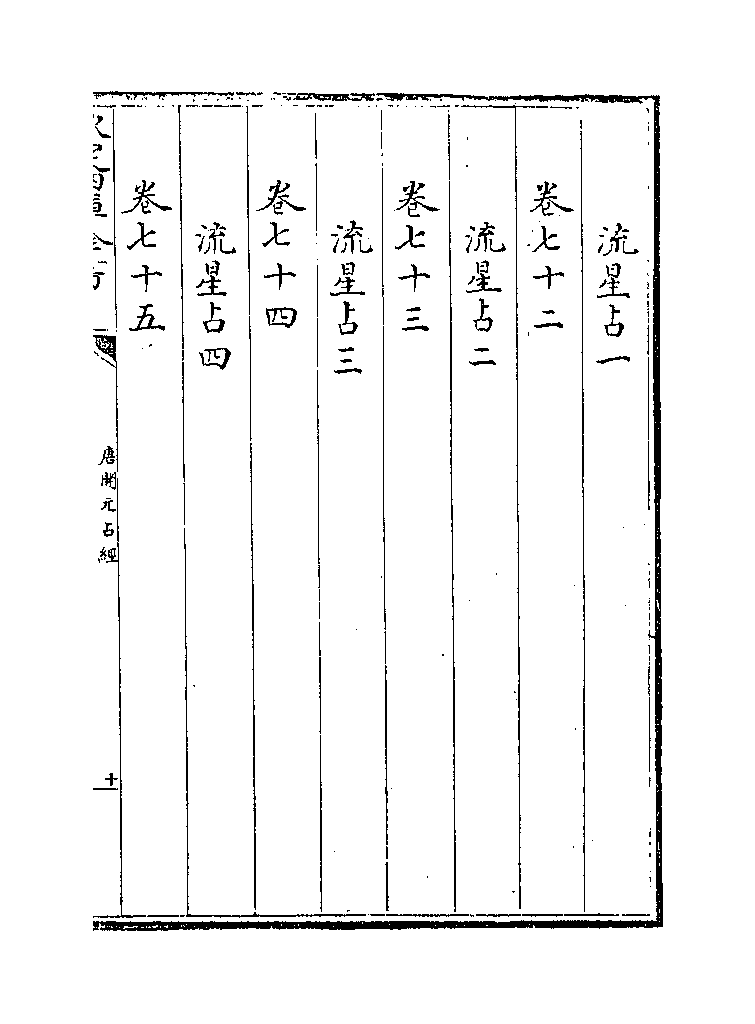 流星占一
卷七十二
流星占二
卷七十三
流星占三
卷七十四
流星占四
卷七十五
唐開元占經
十